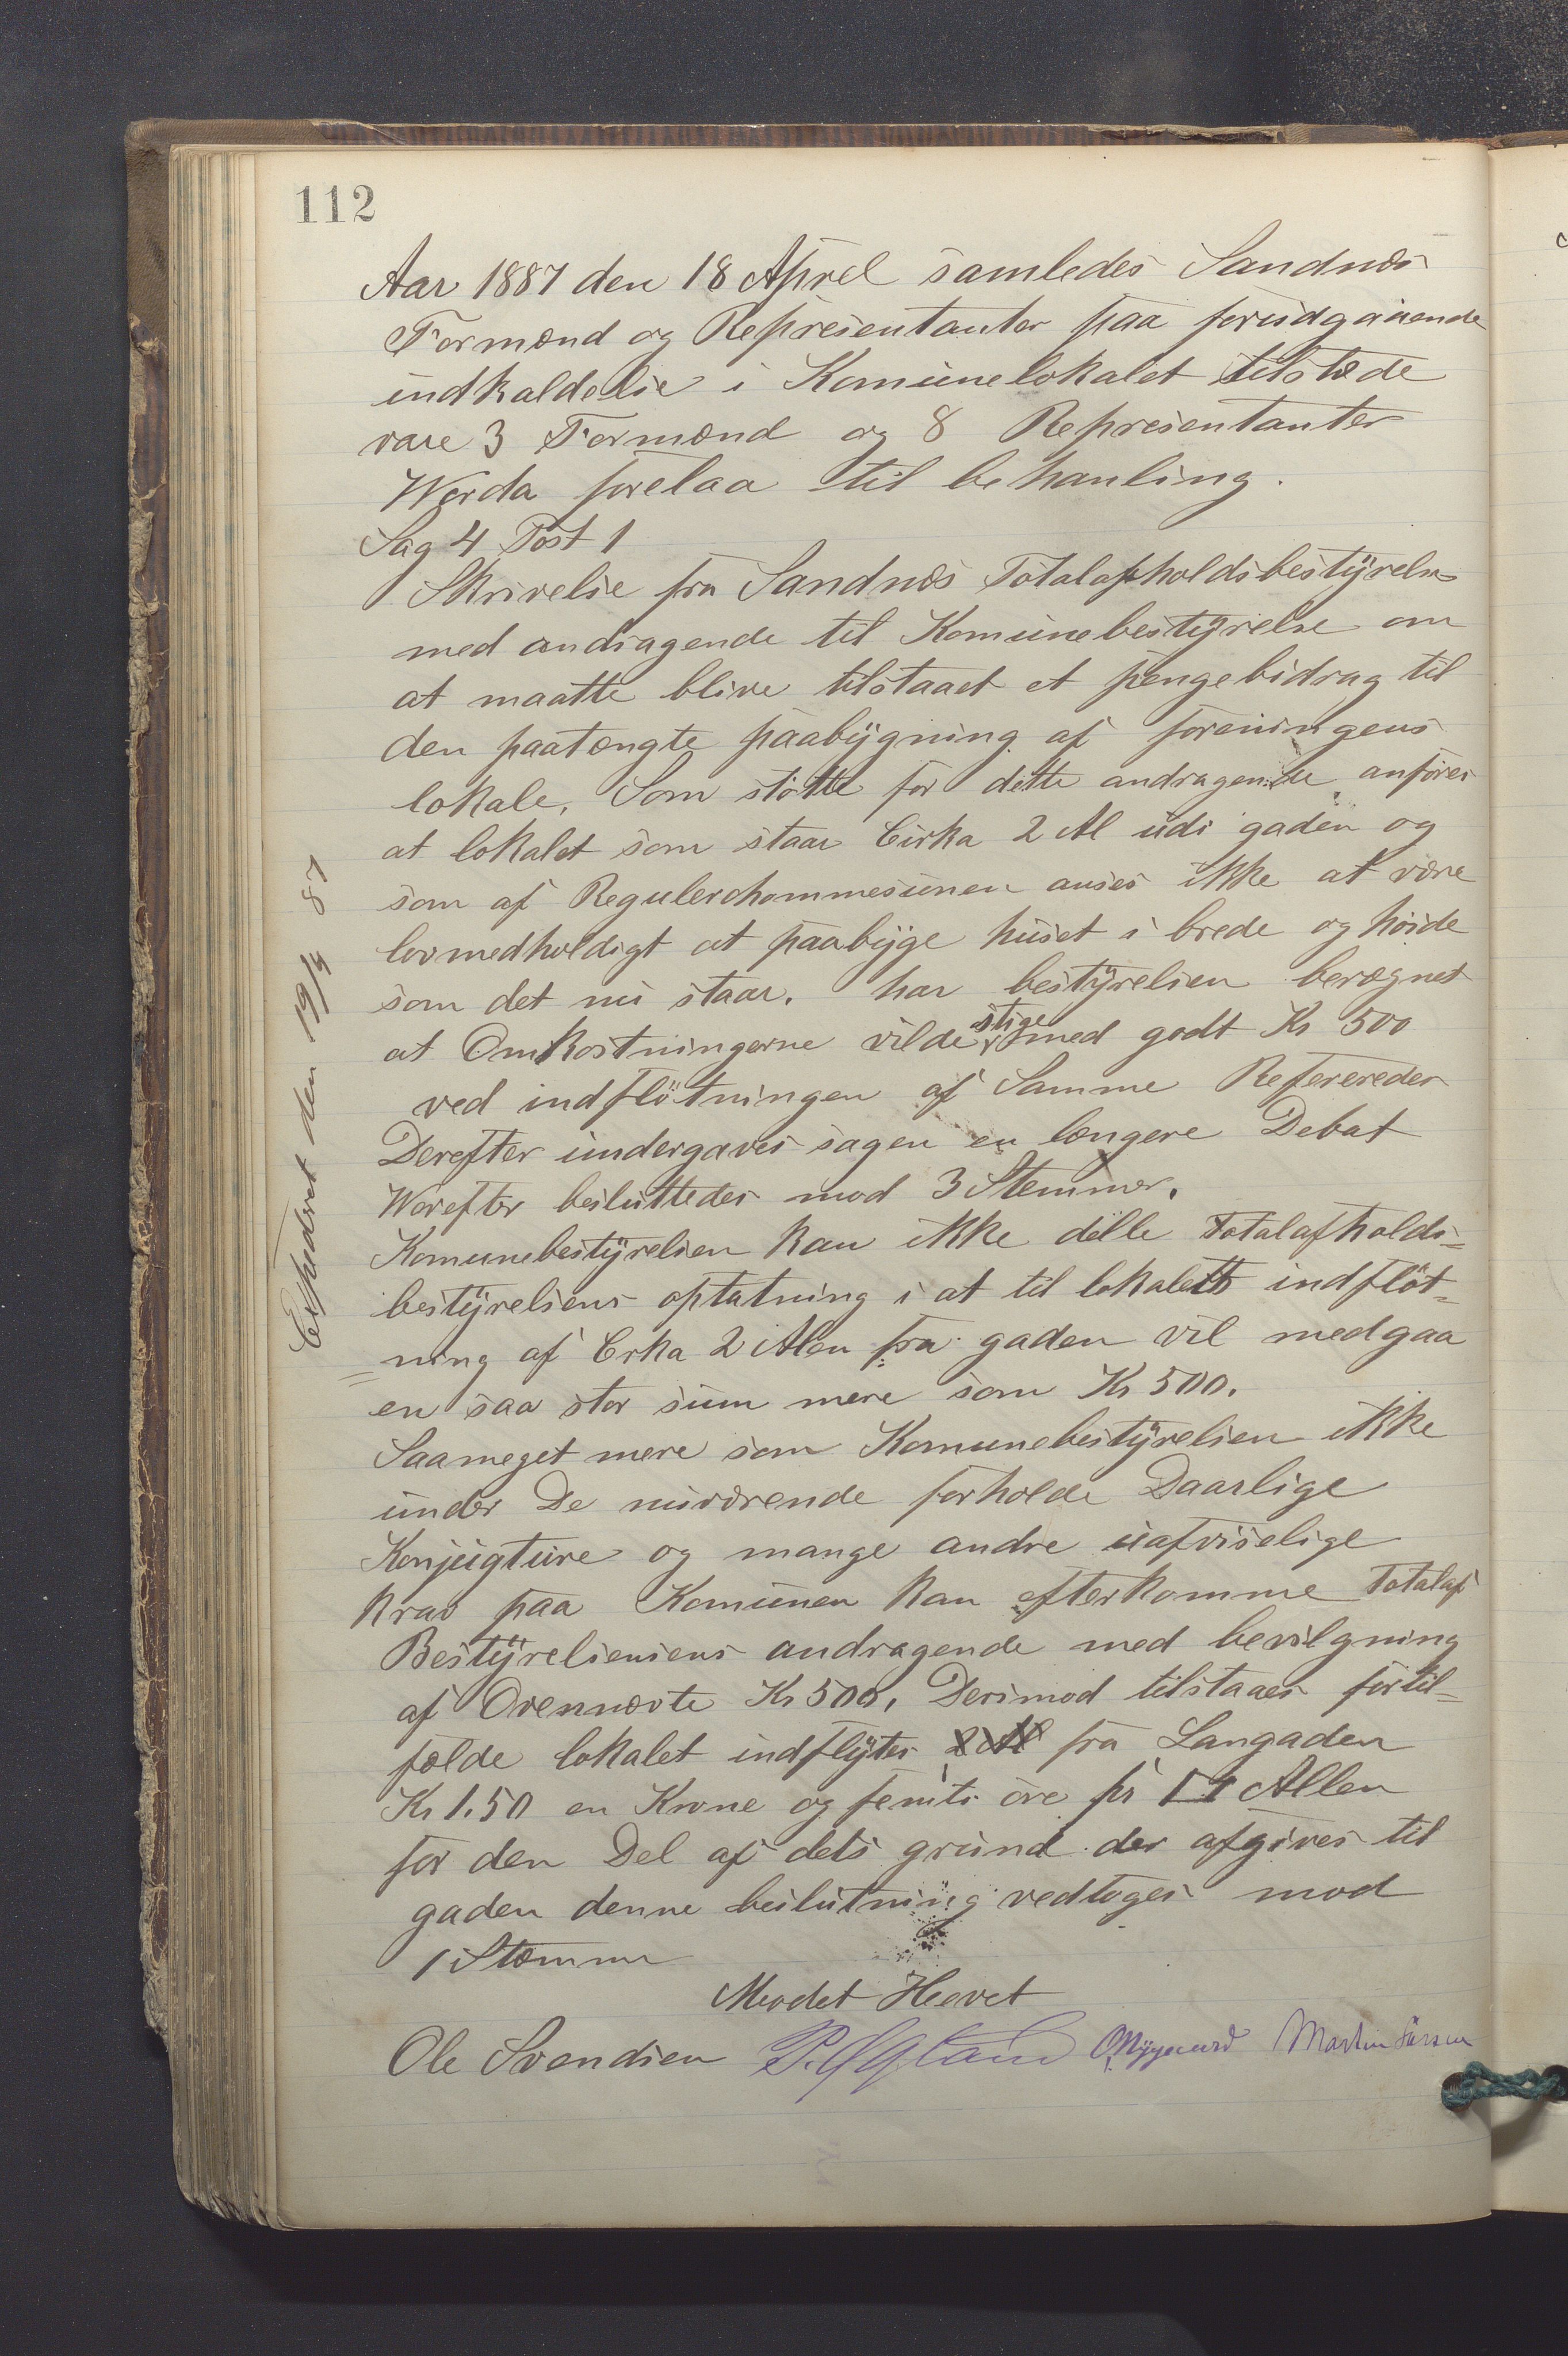 112
Aar 1887 den 18 Aprel samledes Sandnæs
Formænd og Representanter paa forudgaaende
indkaldelse i Komunelokalet tilstede
vare 3 Formænd og 8 Representanter
Worda forelaa til behanling.
Sag 4 Post 1
Skrivelse fra Sandnæs Totalafholdsbestyrelse
med andragende til Komunebestyrelse om
at maatte blive tilstaaet et pengebidrag til
den paatængte paabygning af foreningens
lokale. Som støtte for dette andragende anføres
at lokalet som staar Cirka 2 Al udi gaden og
som af Regulerchommesunen anses ikke at være
lovmedholdigt at paabyge huset i brede og høide
som det nu staar. har bestyrelsen beregnet
at Omkostningerne vilde stige med godt Kr 500
ved indfløtningen af Samme Refereredes
Derefter undergaves sagen en længere Debat
Worefter besluttedes mod 3 Stemmer.
Komunebestyrelsen kan ikke delle Totalafholds=
bestyrelsens opfatning i at til lokalets indfløt=
ning af Cirka 2 Alen fra gaden vil medgaa
en saa stor sum mere som Kr 500.
Saameget mere som Komunebestyrelsen ikke
under De nuværende forholde Daarlige
Konjugture og mange andre uafviselige
krav paa Komunen kan efterkomme Totalaf
Bestyrelsensens andragende med bevilgning
af Ovennævte Kr 500. Derimod tilstaaes fortil=
fælde lokalet indflytes 2 Al fra Langaden
Kr 1.50 en Krone og femti øre pr □ Allen
for den Del af dets grund der afgives til
gaden denne beslutning vedtoges mod
1 Stemme
Mødet Hævet
Ole Svendsen P. Øglænd O. Nygaard Martin Larsen
Expederet den 19/4 87